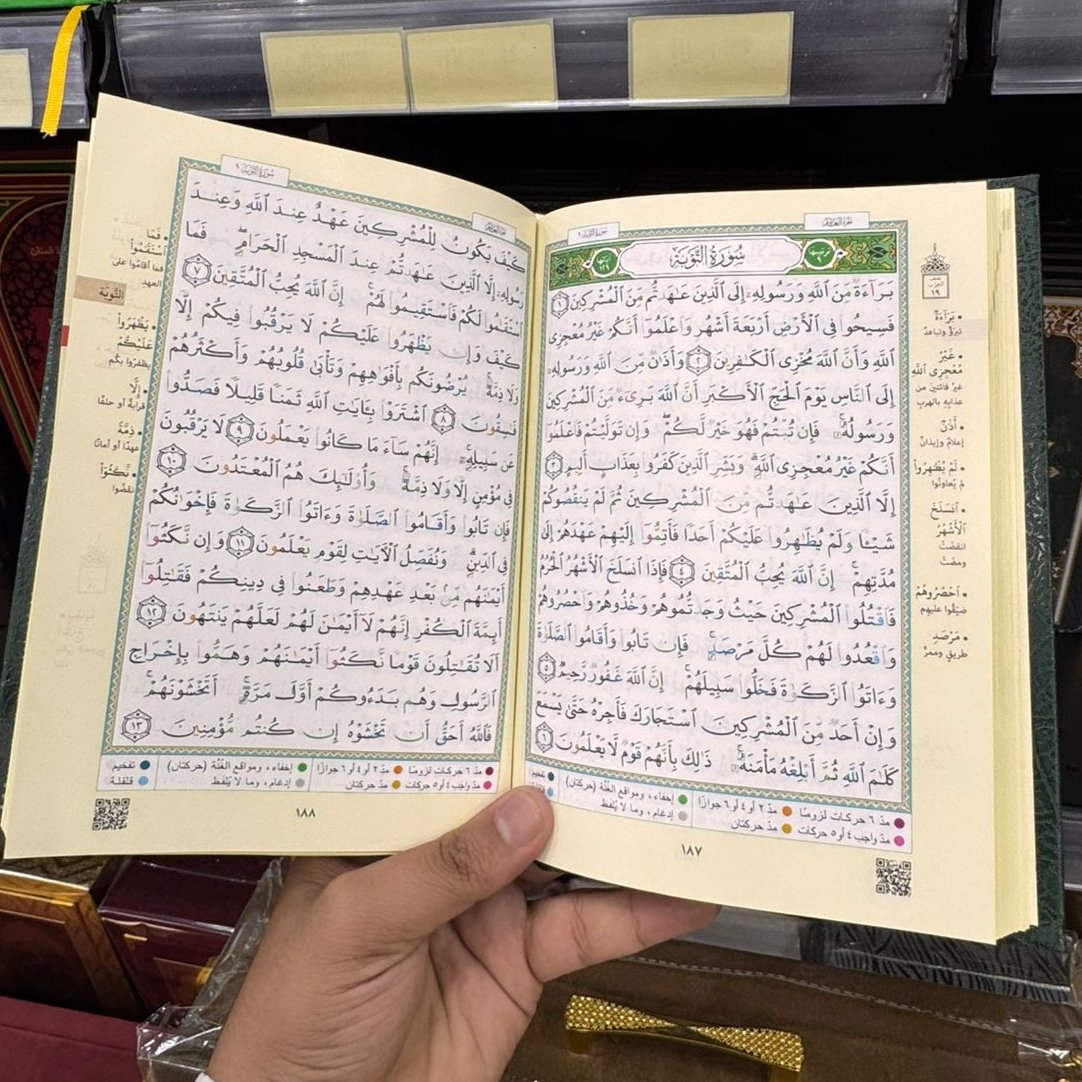 الجزء العاشر
سورة التوبة ٩
ترتيبها ٩
سُورَةُ التَّوْبَةِ
آياتها ١٢٩
بَرَآءَةٌ مِّنَ ٱللَّهِ وَرَسُولِهِۦٓ إِلَى ٱلَّذِينَ عَٰهَدتُّم مِّنَ ٱلْمُشْرِكِينَ ١
فَسِيحُوا۟ فِى ٱلْأَرْضِ أَرْبَعَةَ أَشْهُرٍ وَٱعْلَمُوٓا۟ أَنَّكُمْ غَيْرُ مُعْجِزِى
ٱللَّهِ وَأَنَّ ٱللَّهَ مُخْزِى ٱلْكَٰفِرِينَ ٢ وَأَذَٰنٌ مِّنَ ٱللَّهِ وَرَسُولِهِۦٓ
إِلَى ٱلنَّاسِ يَوْمَ ٱلْحَجِّ ٱلْأَكْبَرِ أَنَّ ٱللَّهَ بَرِىٓءٌ مِّنَ ٱلْمُشْرِكِينَ
وَرَسُولُهُۥ فَإِن تُبْتُمْ فَهُوَ خَيْرٌ لَّكُمْ وَإِن تَوَلَّيْتُمْ فَٱعْلَمُوٓا۟
أَنَّكُمْ غَيْرُ مُعْجِزِى ٱللَّهِ وَبَشِّرِ ٱلَّذِينَ كَفَرُوا۟ بِعَذَابٍ أَلِيمٍ ٣
إِلَّا ٱلَّذِينَ عَٰهَدتُّم مِّنَ ٱلْمُشْرِكِينَ ثُمَّ لَمْ يَنقُصُوكُمْ
شَيْـًٔا وَلَمْ يُظَٰهِرُوا۟ عَلَيْكُمْ أَحَدًا فَأَتِمُّوٓا۟ إِلَيْهِمْ عَهْدَهُمْ إِلَىٰ
مُدَّتِهِمْ إِنَّ ٱللَّهَ يُحِبُّ ٱلْمُتَّقِينَ ٤ فَإِذَا ٱنسَلَخَ ٱلْأَشْهُرُ ٱلْحُرُمُ
فَٱقْتُلُوا۟ ٱلْمُشْرِكِينَ حَيْثُ وَجَدتُّمُوهُمْ وَخُذُوهُمْ وَٱحْصُرُوهُمْ
وَٱقْعُدُوا۟ لَهُمْ كُلَّ مَرْصَدٍ فَإِن تَابُوا۟ وَأَقَامُوا۟ ٱلصَّلَوٰةَ
وَءَاتَوُا۟ ٱلزَّكَوٰةَ فَخَلُّوا۟ سَبِيلَهُمْ إِنَّ ٱللَّهَ غَفُورٌ رَّحِيمٌ ٥
وَإِنْ أَحَدٌ مِّنَ ٱلْمُشْرِكِينَ ٱسْتَجَارَكَ فَأَجِرْهُ حَتَّىٰ يَسْمَعَ
كَلَٰمَ ٱللَّهِ ثُمَّ أَبْلِغْهُ مَأْمَنَهُۥ ذَٰلِكَ بِأَنَّهُمْ قَوْمٌ لَّا يَعْلَمُونَ ٦
الحزب
١٩
• بَرَآءَةٌ
تبرّؤ وتباعد
• غَيْرُ
مُعْجِزِي اللَّهِ
غير فائتين من
عذابه بالهرب
• أَذَٰنٌ
إعلام وإيذان
• لَمْ يُظَٰهِرُوا۟
لم يعاونوا
• ٱنسَلَخَ
ٱلْأَشْهُرُ
انقضت
ومضت
• ٱحْصُرُوهُمْ
ضيّقوا عليهم
• مَرْصَدٍ
طريق وممر
مدّ ٦ حركات لزوماً
مدّ ٢ أو ٤ أو ٦ جوازاً
إخفاء، ومواقع الغُنَّة (حركتان)
تفخيم
مدّ واجب ٤ أو ٥ حركات
مدّ حركتان
إدغام، وما لا يُلفظ
١٨٧
الجزء العاشر
سورة التوبة ٩
كَيْفَ يَكُونُ لِلْمُشْرِكِينَ عَهْدٌ عِندَ ٱللَّهِ وَعِندَ
رَسُولِهِۦٓ إِلَّا ٱلَّذِينَ عَٰهَدتُّمْ عِندَ ٱلْمَسْجِدِ ٱلْحَرَامِ فَمَا
ٱسْتَقَٰمُوا۟ لَكُمْ فَٱسْتَقِيمُوا۟ لَهُمْ إِنَّ ٱللَّهَ يُحِبُّ ٱلْمُتَّقِينَ ٧
كَيْفَ وَإِن يَظْهَرُوا۟ عَلَيْكُمْ لَا يَرْقُبُوا۟ فِيكُمْ إِلًّا
وَلَا ذِمَّةً يُرْضُونَكُم بِأَفْوَٰهِهِمْ وَتَأْبَىٰ قُلُوبُهُمْ وَأَكْثَرُهُمْ
فَٰسِقُونَ ٨ ٱشْتَرَوْا۟ بِـَٔايَٰتِ ٱللَّهِ ثَمَنًا قَلِيلًا فَصَدُّوا۟
عَن سَبِيلِهِۦٓ إِنَّهُمْ سَآءَ مَا كَانُوا۟ يَعْمَلُونَ ٩ لَا يَرْقُبُونَ
فِى مُؤْمِنٍ إِلًّا وَلَا ذِمَّةً وَأُو۟لَٰٓئِكَ هُمُ ٱلْمُعْتَدُونَ ١٠
فَإِن تَابُوا۟ وَأَقَامُوا۟ ٱلصَّلَوٰةَ وَءَاتَوُا۟ ٱلزَّكَوٰةَ فَإِخْوَٰنُكُمْ
فِى ٱلدِّينِ وَنُفَصِّلُ ٱلْـَٔايَٰتِ لِقَوْمٍ يَعْلَمُونَ ١١ وَإِن نَّكَثُوٓا۟
أَيْمَٰنَهُم مِّنۢ بَعْدِ عَهْدِهِمْ وَطَعَنُوا۟ فِى دِينِكُمْ فَقَٰتِلُوٓا۟
أَئِمَّةَ ٱلْكُفْرِ إِنَّهُمْ لَآ أَيْمَٰنَ لَهُمْ لَعَلَّهُمْ يَنتَهُونَ ١٢
أَلَا تُقَٰتِلُونَ قَوْمًا نَّكَثُوٓا۟ أَيْمَٰنَهُمْ وَهَمُّوا۟ بِإِخْرَاجِ
ٱلرَّسُولِ وَهُم بَدَءُوكُمْ أَوَّلَ مَرَّةٍ أَتَخْشَوْنَهُمْ
فَٱللَّهُ أَحَقُّ أَن تَخْشَوْهُ إِن كُنتُم مُّؤْمِنِينَ ١٣
فَمَا
ٱسْتَقَٰمُوا۟
فما أقاموا على
العهد
التَّوبَة
• يَظْهَرُوا۟
عَلَيْكُمْ
يظفروا بكم
• إِلًّا
قرابة أو حلفاً
• ذِمَّةً
عهداً أو أماناً
• نَّكَثُوٓا۟
نقضوا
مدّ ٦ حركات لزوماً
مدّ ٢ أو ٤ أو ٦ جوازاً
إخفاء، ومواقع الغُنَّة (حركتان)
تفخيم
مدّ واجب ٤ أو ٥ حركات
مدّ حركتان
إدغام، وما لا يُلفظ
قلقلة
١٨٨